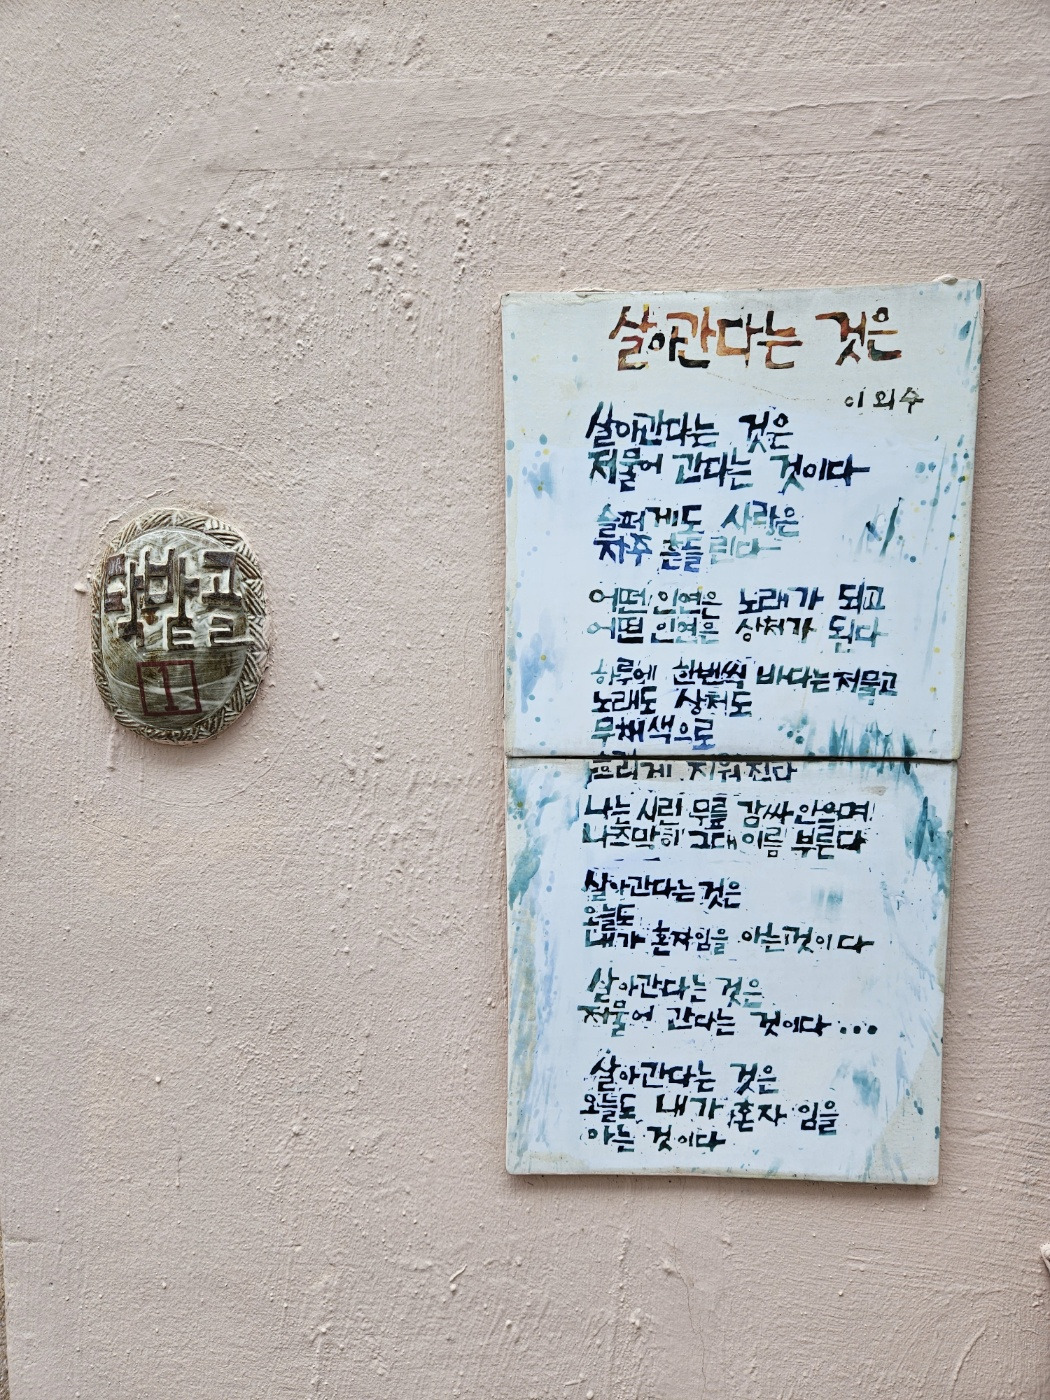 1
살아간다는 것은
이외수
살아간다는 것은
저물어 간다는 것이다
슬퍼게도 사랑은
자주 흔들린다
어떤 인연은 노래가 되고
어떤 인연은 상처가 된다
하루에 한번씩 바다는 저물고
노래도 상처도
무채색으로
흐리게 지워진다
나는 시린 무릎 감싸 안으며
나즈막히 그대 이름 부른다
살아간다는 것은
오늘도
내가 혼자임을 아는것이다
살아간다는 것은
저물어 간다는 것이다...
살아간다는 것은
오늘도 내가 혼자 임을
아는 것이다